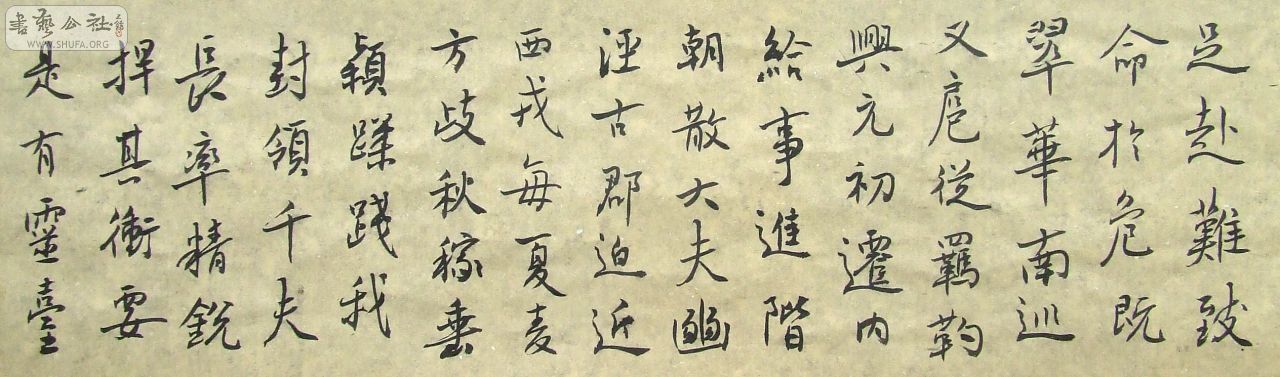 足赴難致
命於危既
翠華南巡
又扈從羈靮
興元初遷内
給事進階
朝散大夫豳
涇古郡迫近
西戎每夏麦
方歧秋稼垂
穎蹂踐我
封領千夫
長率精銳
捍其衝要
是有靈臺
書藝公社
WWW.SHUFA.ORG